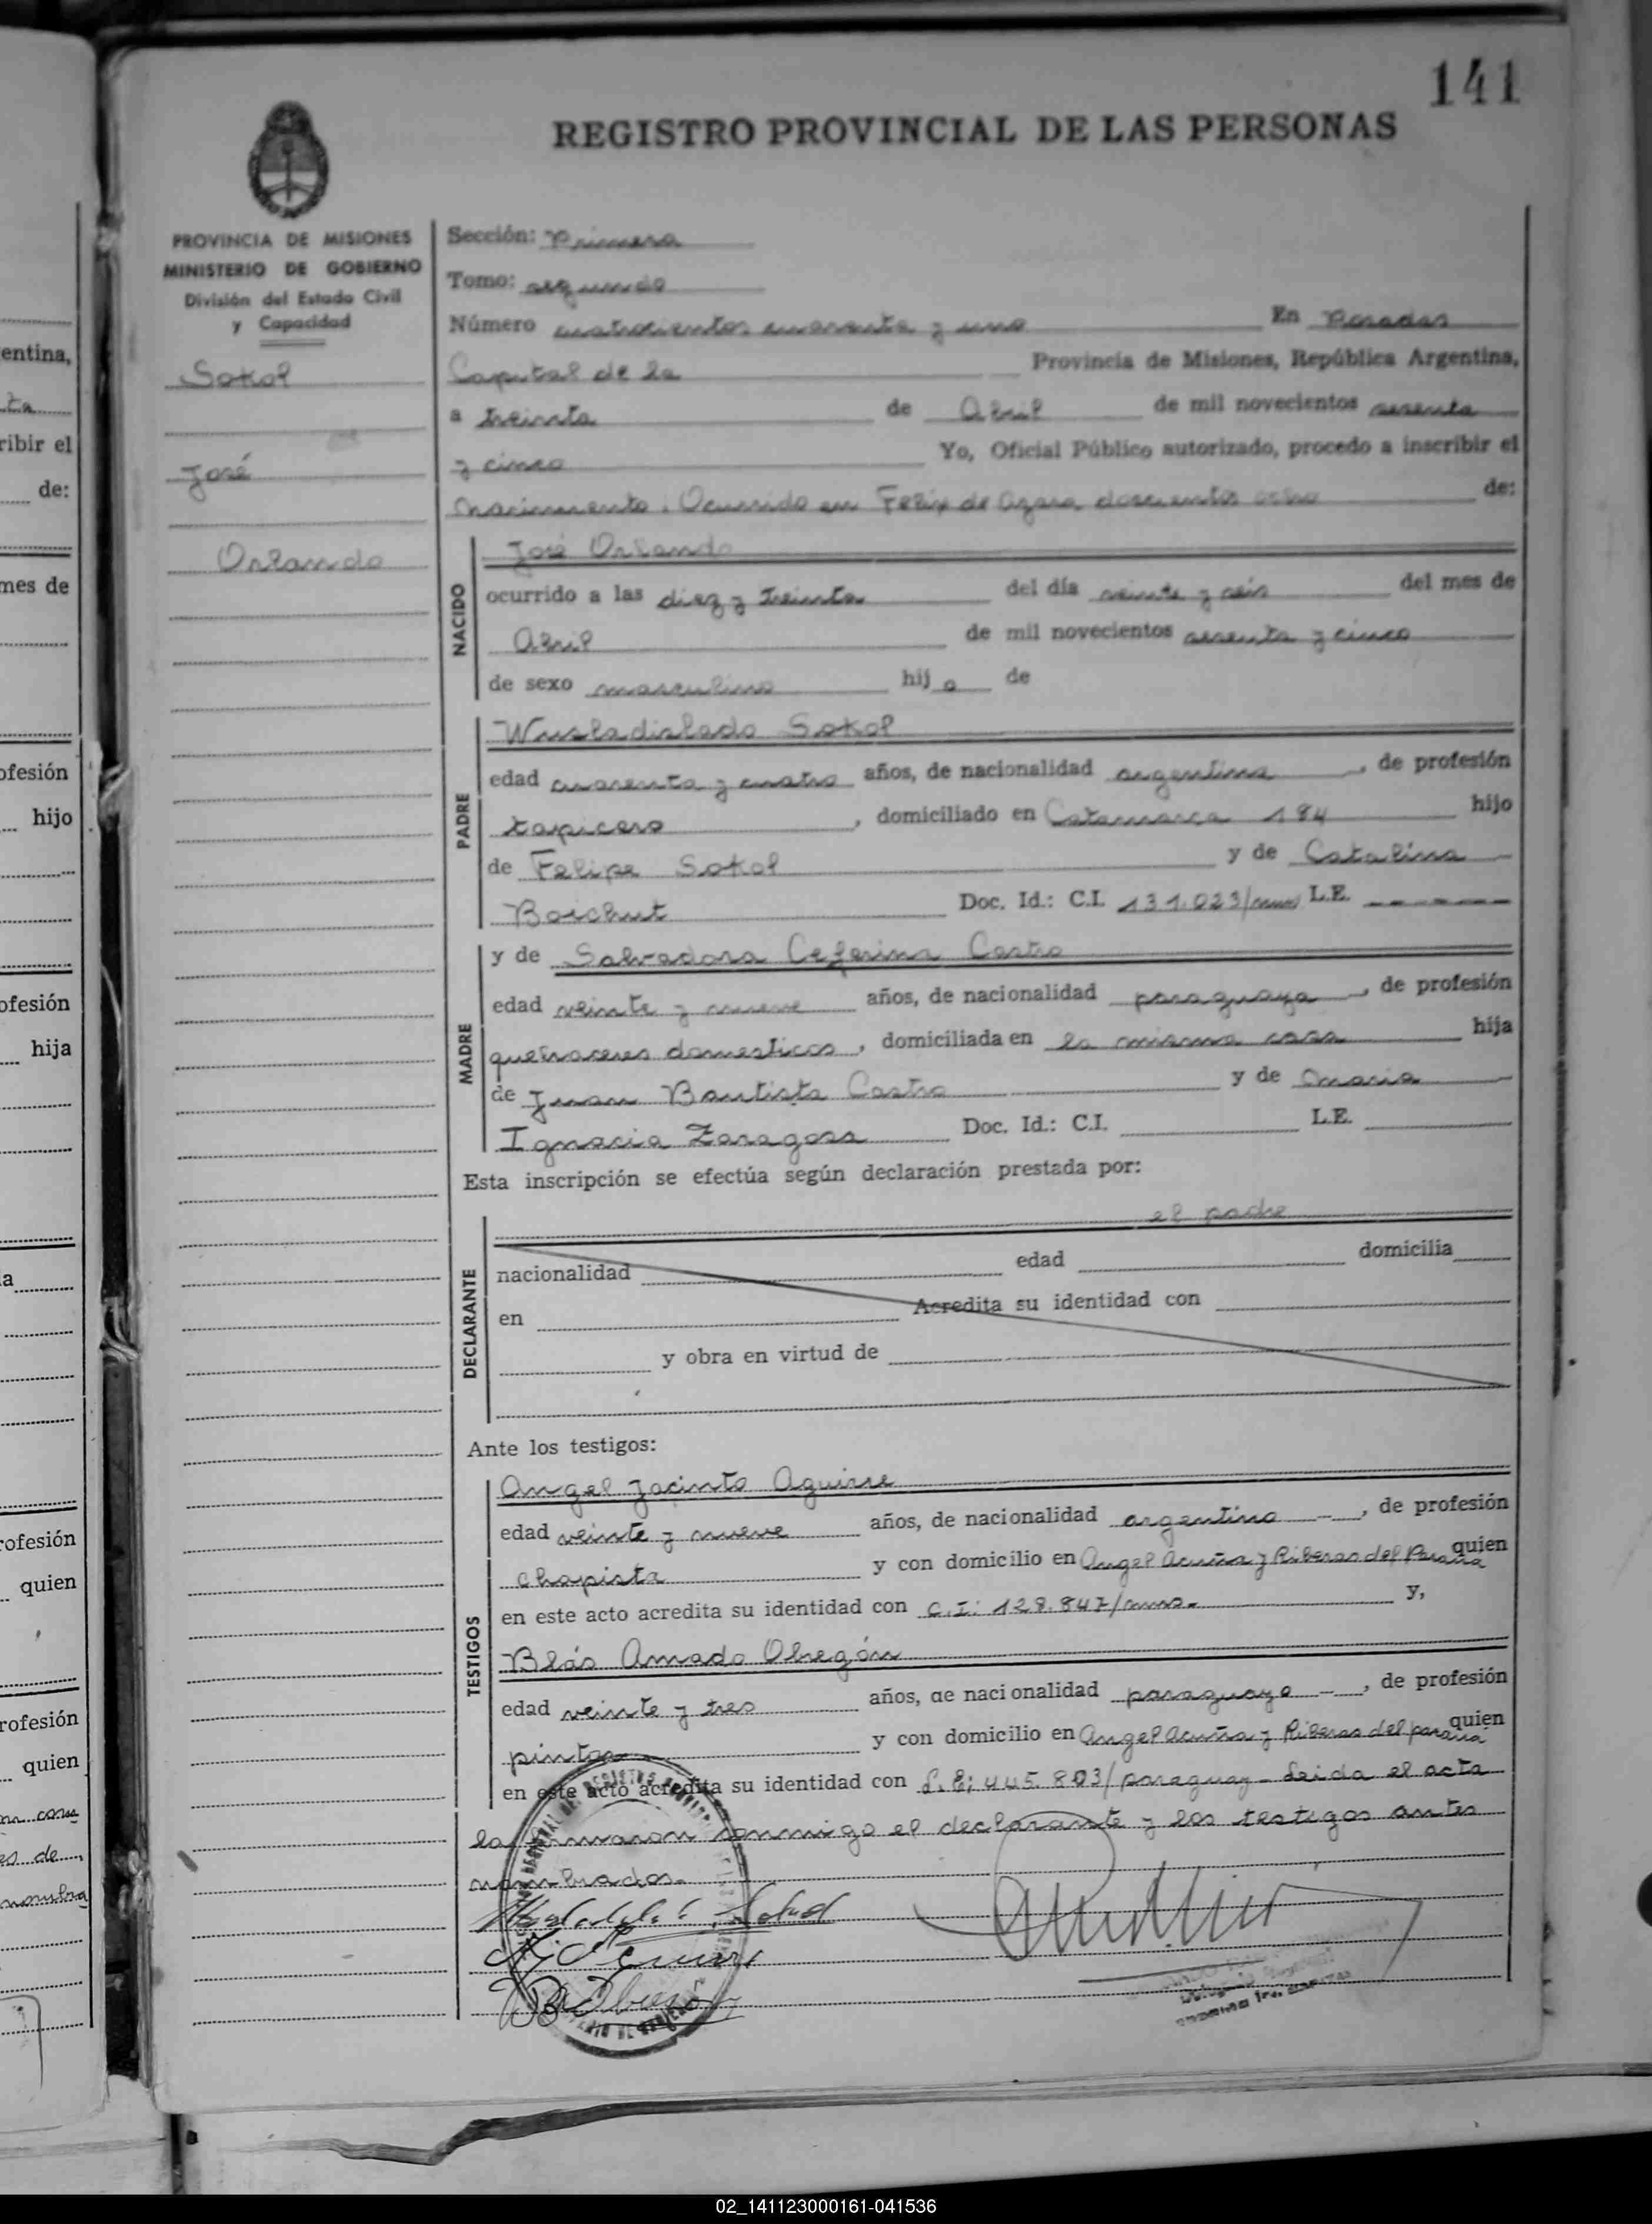 141
REGISTRO PROVINCIAL DE LAS PERSONAS
PROVINCIA DE MISIONES
MINISTERIO DE GOBIERNO
División del Estado Civil
y Capacidad
Sokol
José
Orlando
Sección: Primera
Tomo: segundo
Número cuatrocientos cuarenta y uno En Posadas
Capital de la Provincia de Misiones, República Argentina,
a treinta de Abril de mil novecientos sesenta
y cinco Yo, Oficial Público autorizado, procedo a inscribir el
nacimiento. Ocurrido en Felix de Azara doscientos ocho de:
NACIDO
José Orlando
ocurrido a las diez y treinta del día veinte y seis del mes de
Abril de mil novecientos sesenta y cinco
de sexo masculino hijo de
PADRE
Wusladislado Sokol
edad cuarenta y cuatro años, de nacionalidad argentina, de profesión
tapicero, domiciliado en Catamarca 184 hijo
de Felipe Sokol y de Catalina
Boichut Doc. Id.: C.I. 131.023/mnes L.E. ------
MADRE
y de Salvadora Ceferina Castro
edad veinte y nueve años, de nacionalidad paraguaya, de profesión
quehaceres domesticos, domiciliada en la misma casa hija
de Juan Bautista Castro y de Maria
Ignacia Zaragosa Doc. Id.: C.I. L.E.
Esta inscripción se efectúa según declaración prestada por:
DECLARANTE
el padre
nacionalidad edad domicilia
en Acredita su identidad con
y obra en virtud de
Ante los testigos:
TESTIGOS
Angel Jacinto Aguirre
edad veinte y nueve años, de nacionalidad argentina --, de profesión
chapista y con domicilio en Angel Acuña y Riberas del Paraná quien
en este acto acredita su identidad con C.I: 128.847/mnes.- y,
Blás Amado Obregón
edad veinte y tres años, de nacionalidad paraguayo --, de profesión
pintor y con domicilio en Angel Acuña y Riberas del paraná quien
en este acto acredita su identidad con L.E; 445.803/paraguay - Leida el acta
la firmaron conmigo el declarante y los testigos antes
nombrados.
02_141123000161-041536